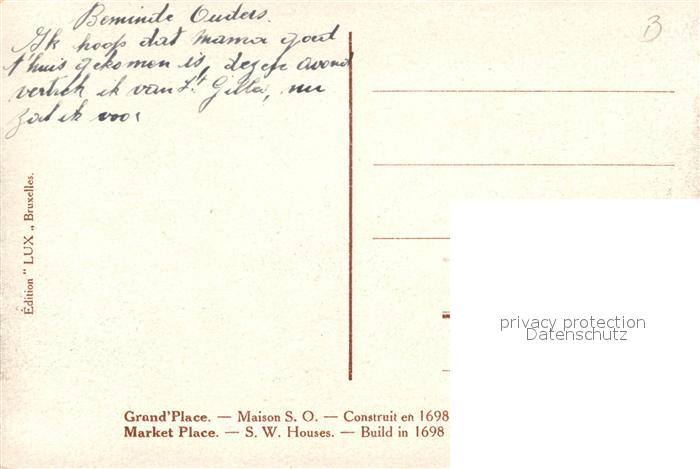 Beminde Ouders.
Ik hoop dat mama goed
t'huis gekomen is, dezen avond
vertrek ik van St Gilles, nu
zal ik voor
B
Édition " LUX „ Bruxelles.
privacy protection
Datenschutz
Grand'Place. — Maison S. O. — Construit en 1698
Market Place. — S. W. Houses. — Build in 1698